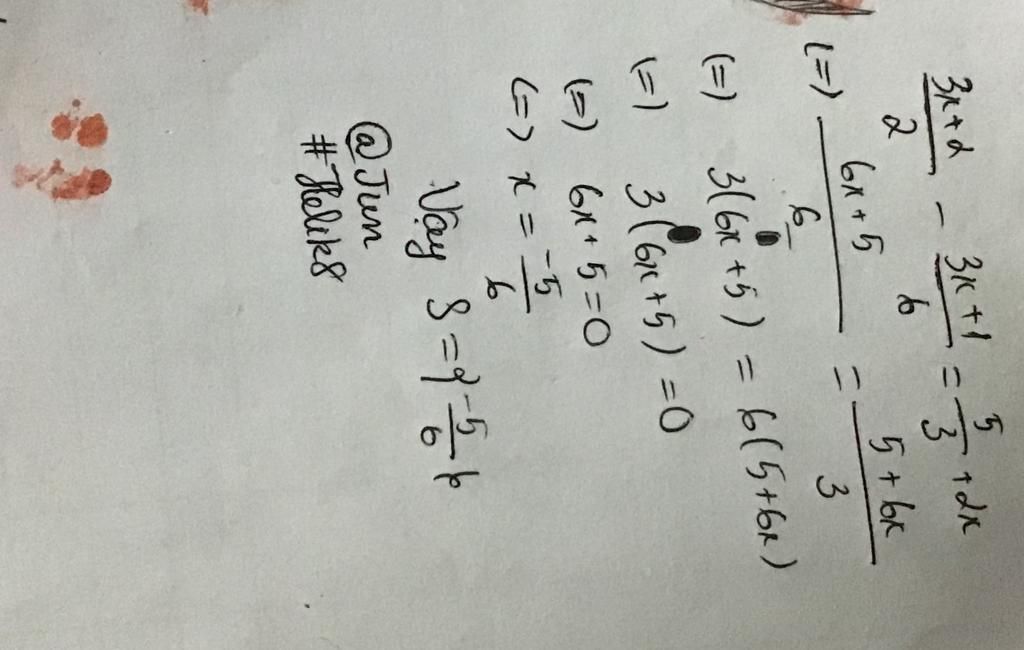 3x+2/2 - 3x+1/6 = 5/3 + 2x
(=) 6x+5/6 = 5+6x/3
(=) 3(6x+5) = 6(5+6x)
(=) 3(6x+5) = 0
(=) 6x+5=0
(=) x = -5/6
Vậy S={-5/6}
@Jun
#Helik8